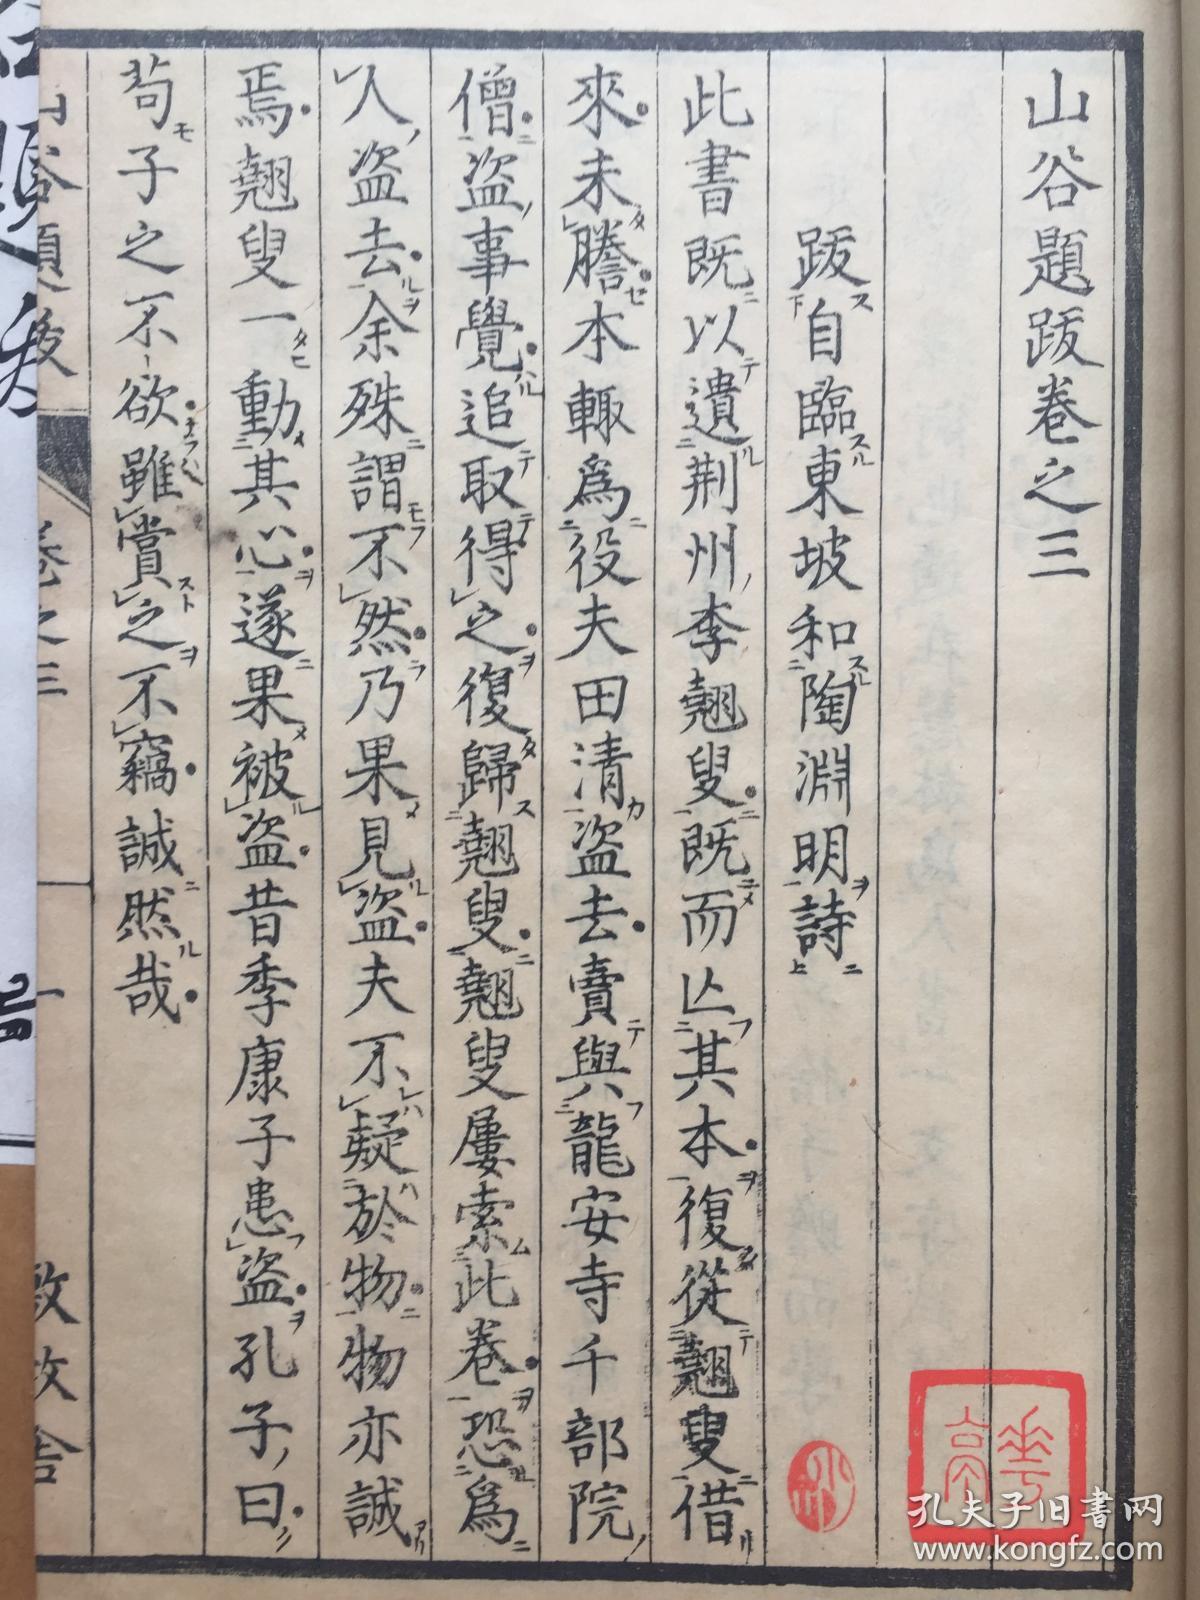 山谷題跋卷之三
跋自臨東坡和陶淵明詩
此書既以遺荆州李翹叟既而亾其本復從翹叟借
來未謄本輒爲役夫田清盜去賣與龍安寺千部院
僧盜事覺追取得之復歸翹叟翹叟屢索此卷恐爲
人盜去余殊謂不然乃果見盜夫不疑於物物亦誠
焉翹叟一動其心遂果被盜昔季康子患盜孔子曰
苟子之不欲雖賞之不竊誠然哉
卷之三
一
孔夫子旧书网
www.kongfz.com